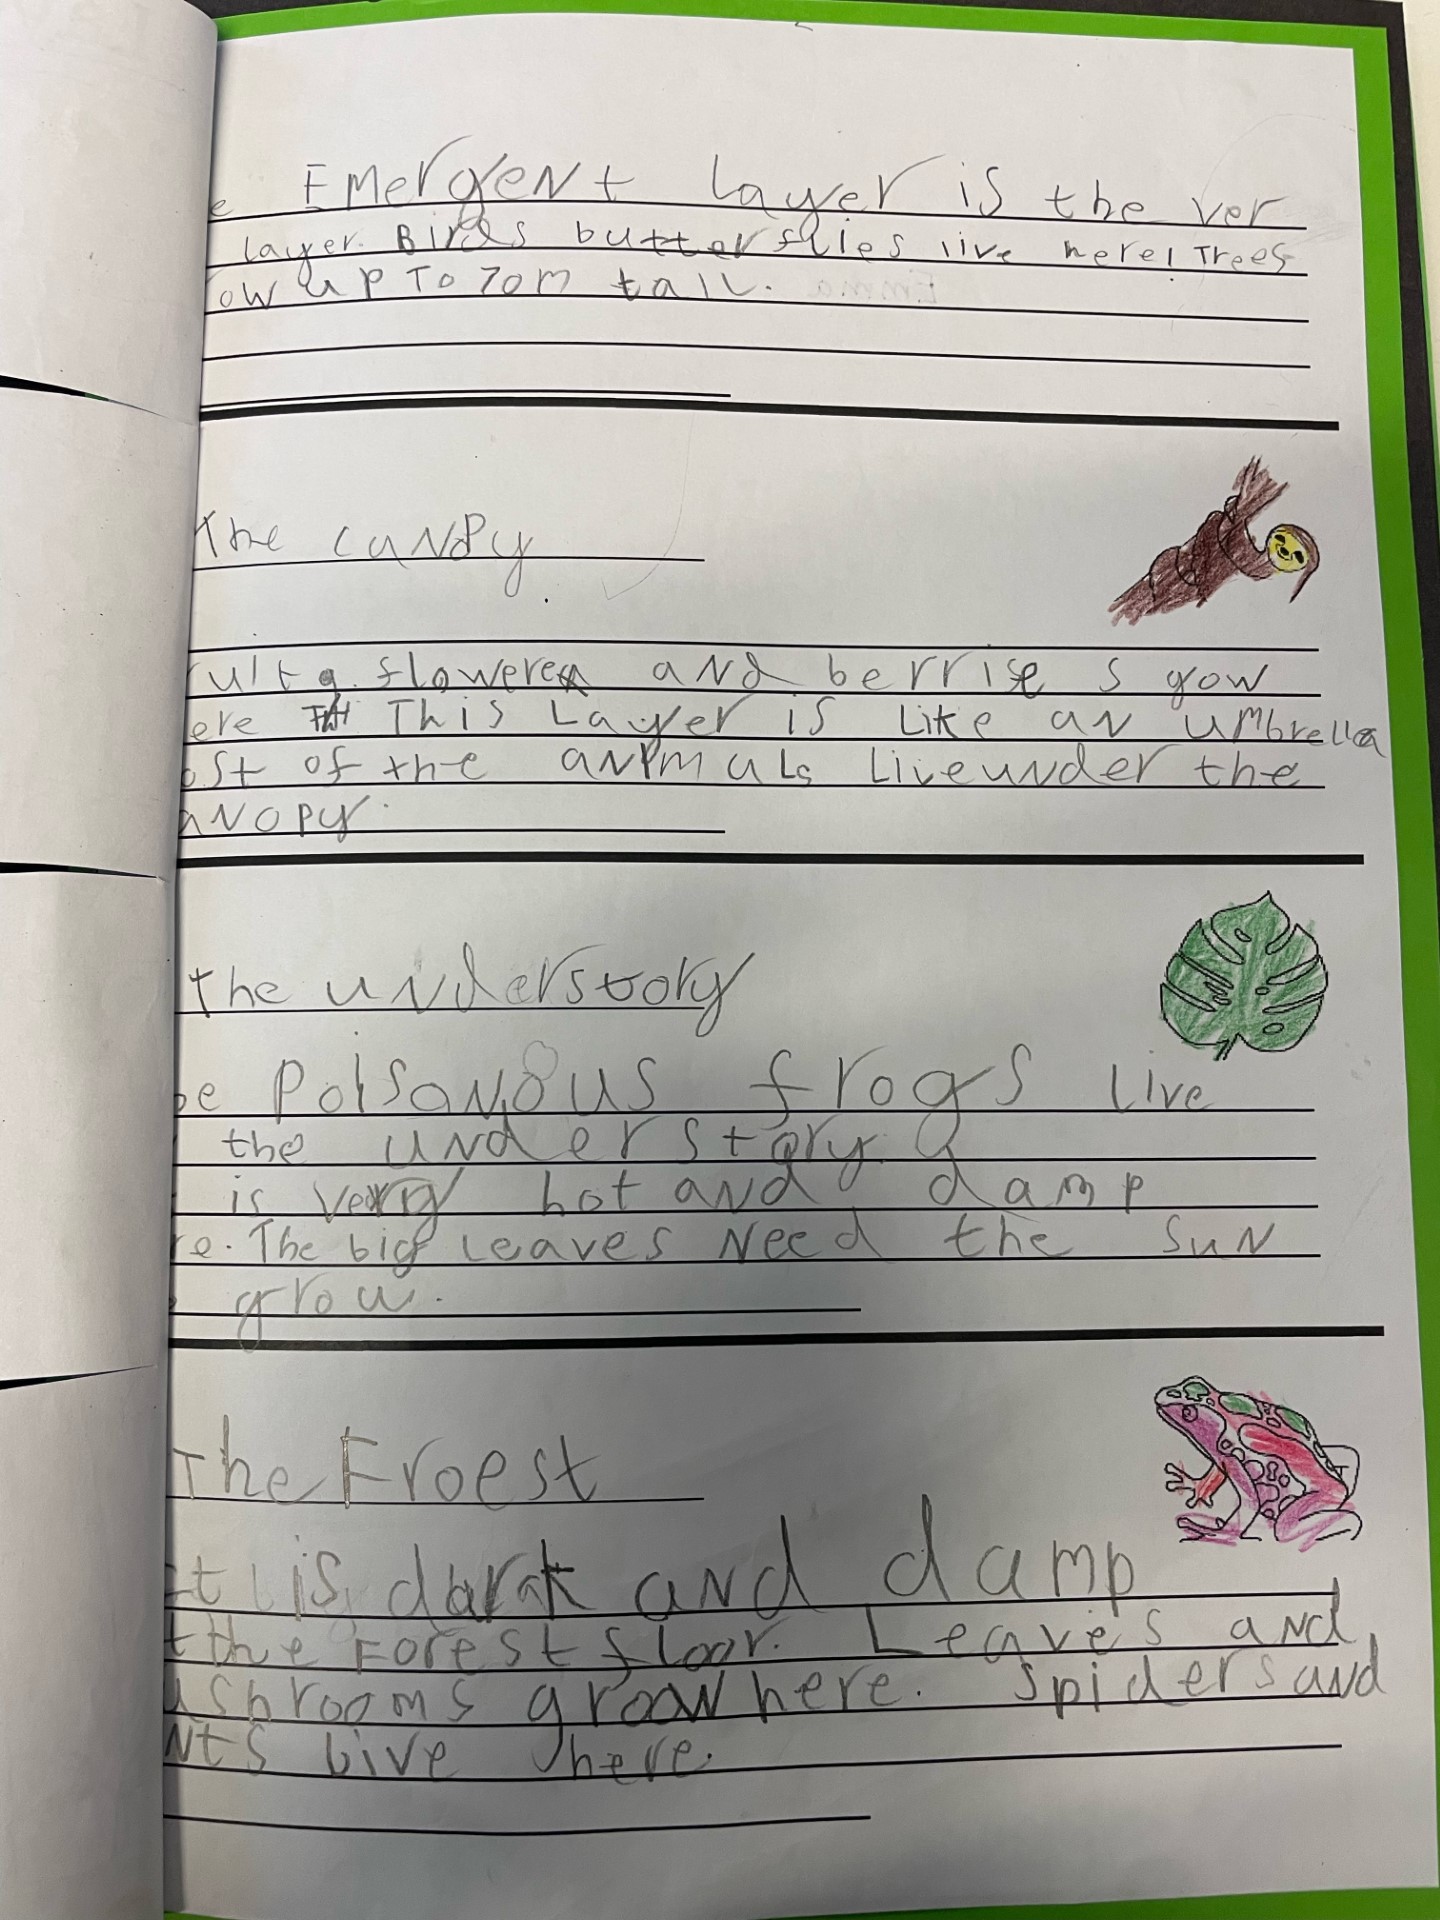 e Emergent layer is the ver
layer. Birds butterflies live here! Trees
ow up To 70m tall.
The canopy
ruit flowere and berries gow
ere This Layer is Like an umbrella
ost of the anímals Live under the
anopy.
the understory
be poisonous frogs live
the understory.
is very hot and damp
re. The big leaves Need the sun
grow.
The Froest
It is dark and damp
t the Forest floor. Leaves and
ushrooms grow here. Spiders and
nts live here.